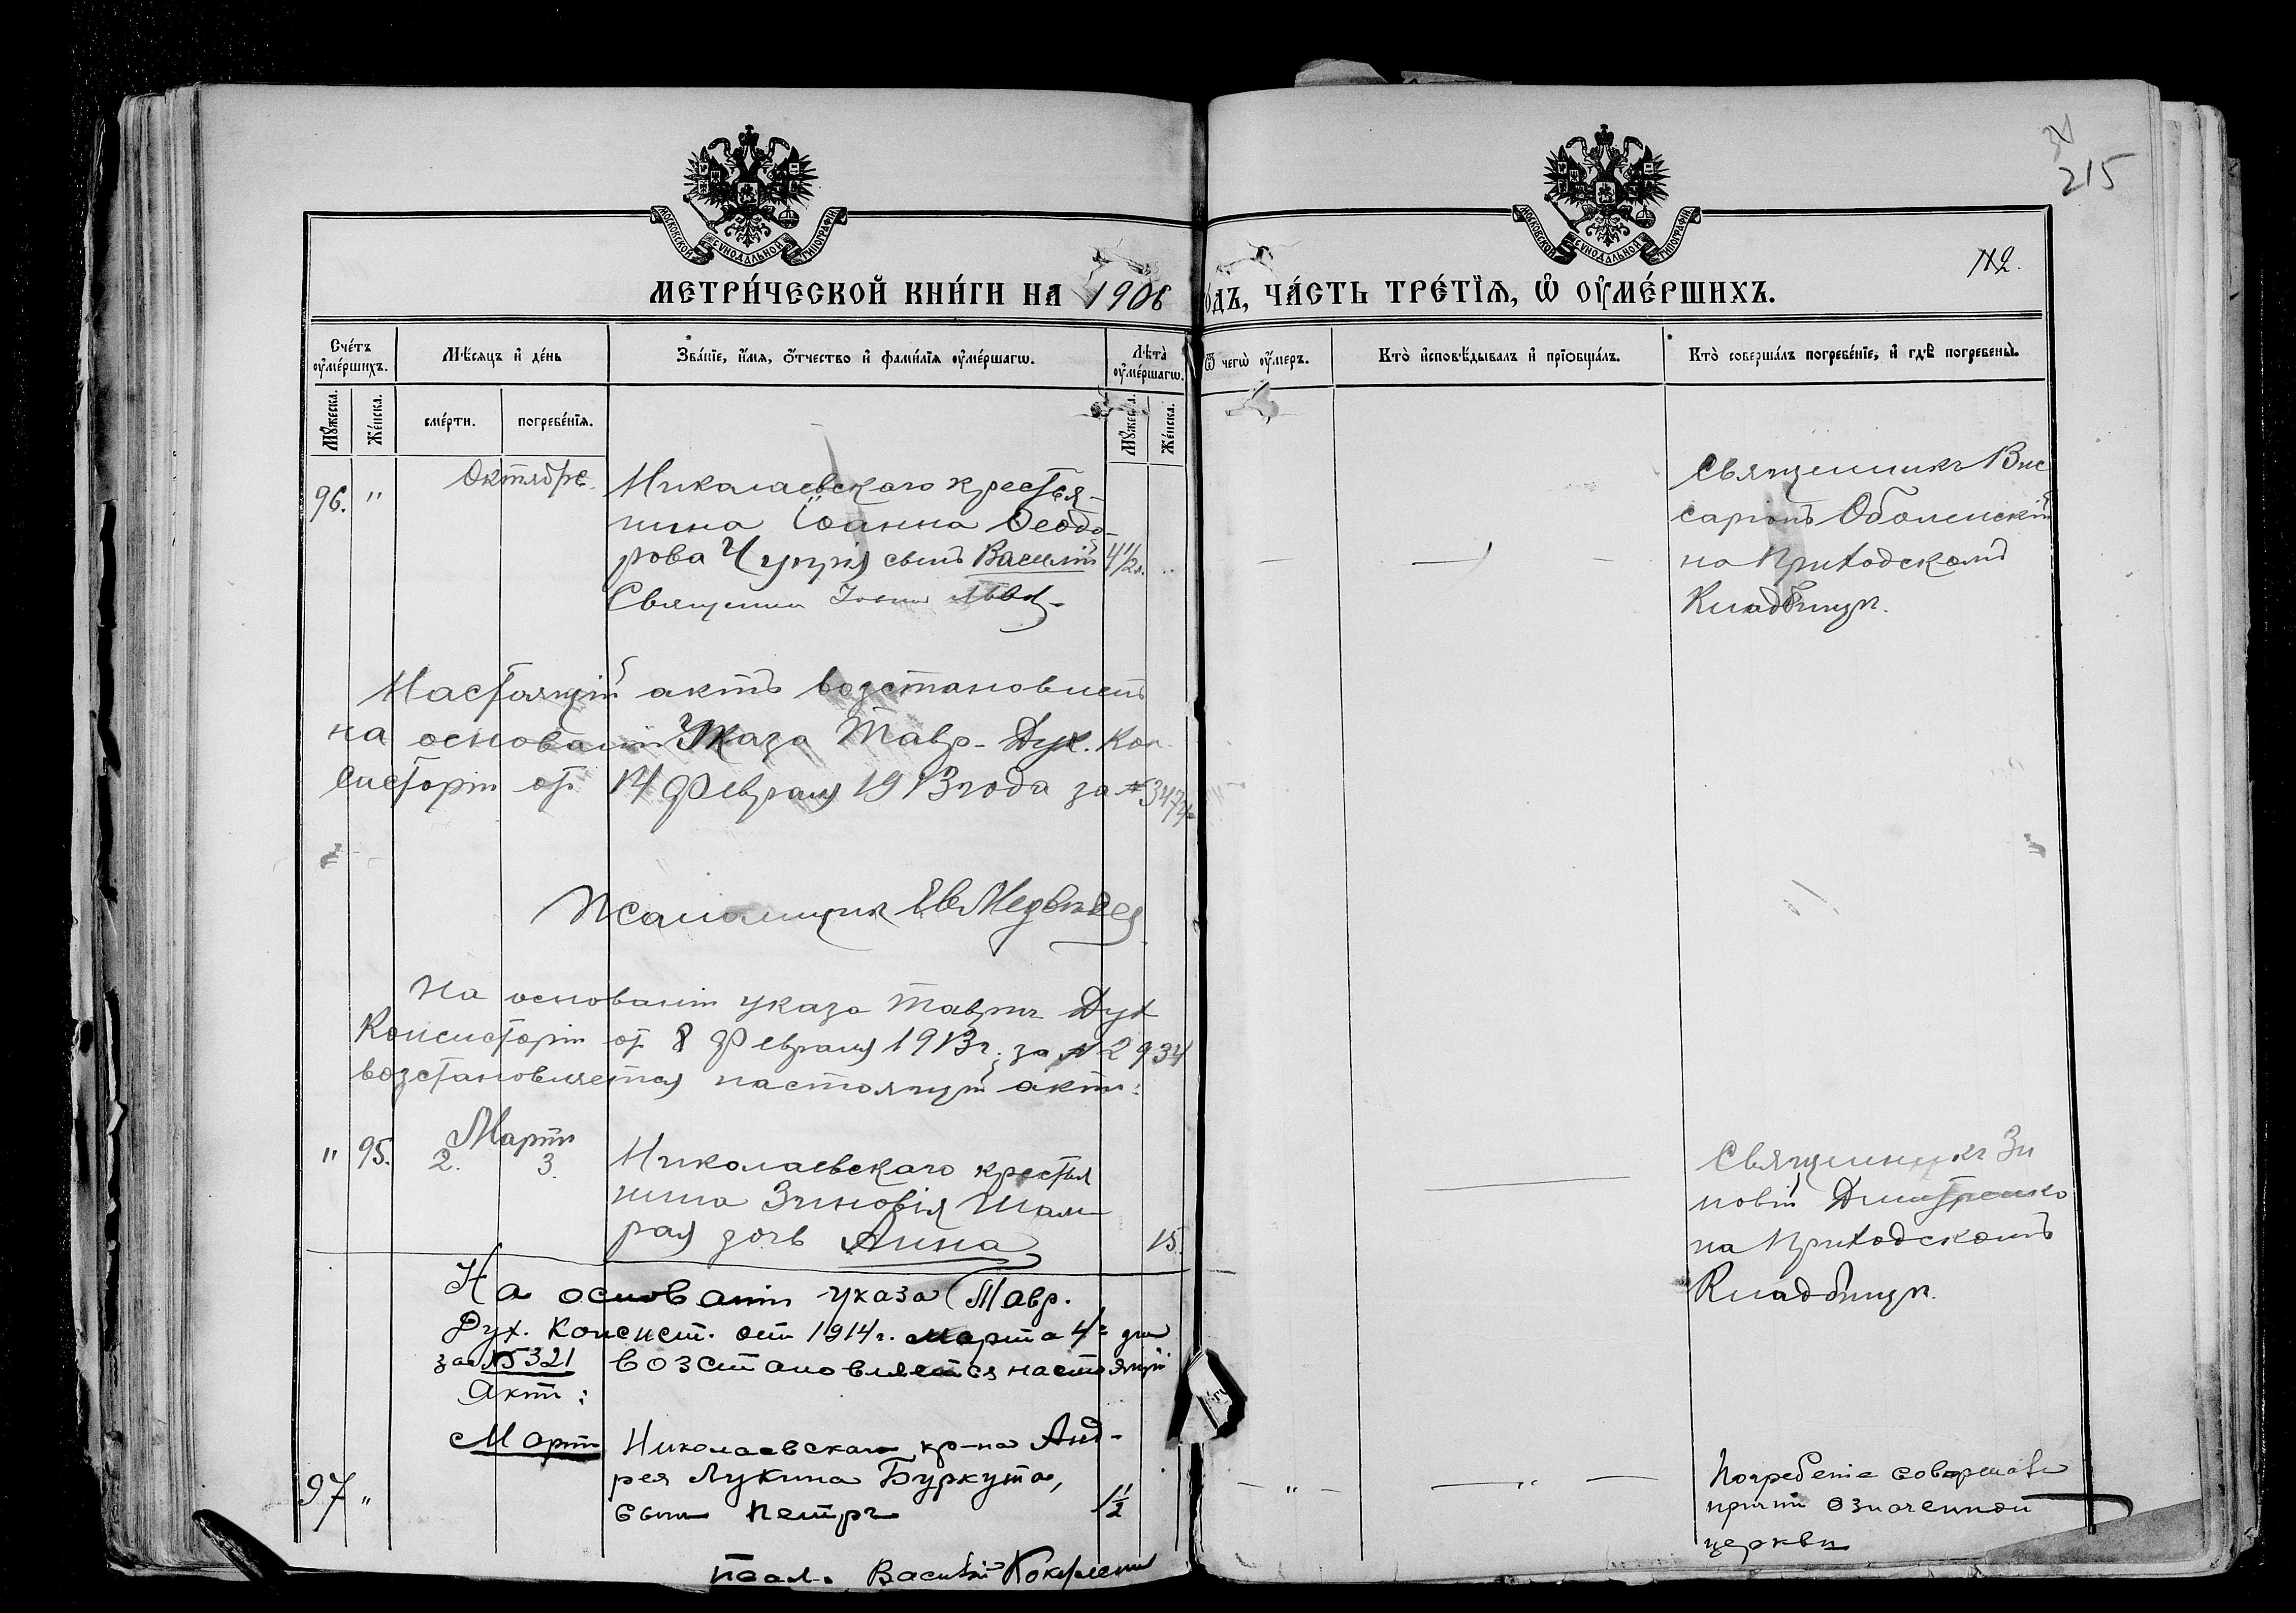 215
112.
МОСКОВСКОЙ СѴНОДАЛЬНОЙ ТИПОГРАФІИ
МОСКОВСКОЙ СѴНОДАЛЬНОЙ ТИПОГРАФІИ
МЕТРИ́ЧЕСКОЙ КНИ́ГИ НА 1906 ГО́ДЪ, ЧА́СТЬ ТРЕ́ТЇѦ, Ѡ҆ ОУ҆МЕ́РШИХЪ.
Сче́тъ оу҆ме́ршихъ.
Мꙋ́жеска.
Же́нска.
Мѣ́сяцъ и҆ де́нь
сме́рти.
погребе́нїѧ.
Зва́нїе, и҆́мѧ, ѻ҆́тчество и҆ фами́лїѧ оу҆ме́ршагѡ.
Лѣ́та оу҆ме́ршагѡ.
Мꙋ́жеска.
Же́нска.
Ѿ чегѡ̀ оу҆́меръ.
Кто̀ и҆сповѣ́дывалъ и҆ прїѻбща́лъ.
Кто̀ соверша́лъ погребе́нїе, и҆ гдѣ̀ погребены̀.
96. "
Октябре
Николаевского крестья-
нина Іоанна Ѳеодо-
рова Чуприя сынъ Василій 4½
Священни Іоаннъ
Священникъ Вис
саріонъ Оболенскій
на Приходскомъ
Кладбищѣ.
Настоящій актъ возстановленъ
на основаніи Указа Тавр. Дух. Кон-
систоріи от 14 Февраля 1913 года за № 3474
Псаломщик Ев Медвѣдев
На основаніи указа Таврич Дух
Консисторіи от 8 Февраля 1913 г. за № 2934
возстановляется настоящій актъ:
" 95.
Мартъ
2. 3.
Николаевскаго крестья
нина Зиновія Шам
рая дочь Анна 15.
Священникъ Зи
новій Дмитренко
на Приходскомъ
Кладбищѣ.
На основаніи указа Тавр.
Дух. Консист. отъ 1914 г. марта 4го дня
за № 5321 возстановляется настоящій
актъ:
Мартъ
97 "
Николаевскаго кр-на Анд-
рея Лукина Буркута,
сынъ Петръ 1½
— " — — " —
Погребеніе совершалъ
причтъ означенной
церкви
псал. Василій